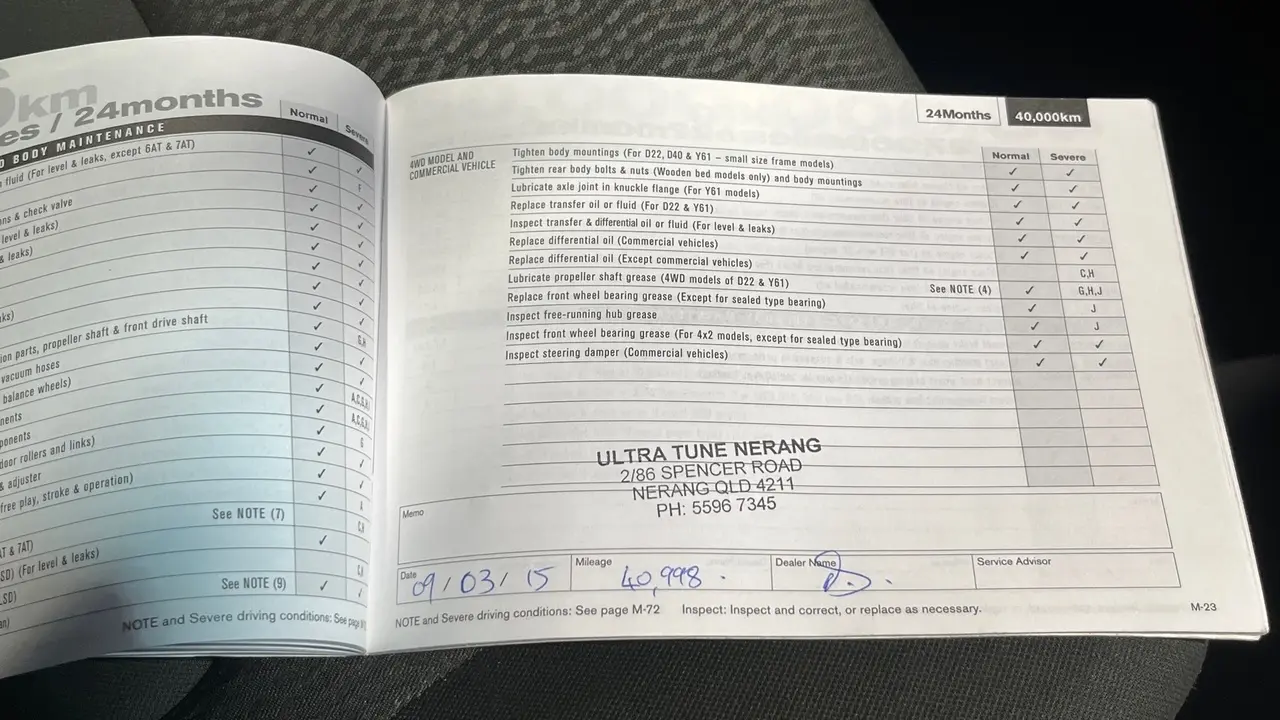 km
es / 24months
Normal
Severe
D BODY MAINTENANCE
fluid (For level & leaks, except 6AT & 7AT)
ns & check valve
level & leaks)
& leaks)
ks)
ion parts, propeller shaft & front drive shaft
G,H
vacuum hoses
balance wheels)
nents
ponents
G
door rollers and links)
& adjuster
free play, stroke & operation)
See NOTE (7)
AT & 7AT)
SD) (For level & leaks)
LSD)
See NOTE (9)
NOTE and Severe driving conditions: See page
24Months
40,000km
Normal
Severe
4WD MODEL AND
COMMERCIAL VEHICLE
Tighten body mountings (For D22, D40 & Y61 – small size frame models) ✓ ✓
Tighten rear body bolts & nuts (Wooden bed models only) and body mountings ✓ ✓
Lubricate axle joint in knuckle flange (For Y61 models) ✓ ✓
Replace transfer oil or fluid (For D22 & Y61) ✓ ✓
Inspect transfer & differential oil or fluid (For level & leaks) ✓ ✓
Replace differential oil (Commercial vehicles) ✓ ✓
Replace differential oil (Except commercial vehicles) C,H
Lubricate propeller shaft grease (4WD models of D22 & Y61) See NOTE (4) ✓ G,H,J
Replace front wheel bearing grease (Except for sealed type bearing) ✓ J
Inspect free-running hub grease ✓ J
Inspect front wheel bearing grease (For 4x2 models, except for sealed type bearing) ✓ ✓
Inspect steering damper (Commercial vehicles) ✓ ✓
ULTRA TUNE NERANG
2/86 SPENCER ROAD
NERANG QLD 4211
PH: 5596 7345
Memo
Date 09/03/15
Mileage 40,998
Dealer Name
Service Advisor
NOTE and Severe driving conditions: See page M-72 Inspect: Inspect and correct, or replace as necessary.
M-23